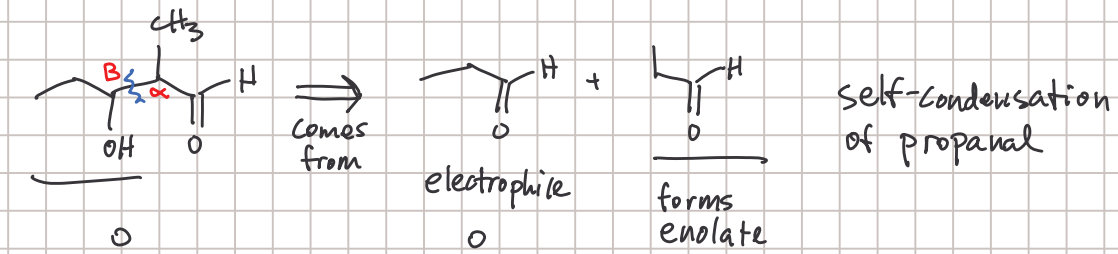 CH3
B
α
H
OH
O
comes
from
H
+
H
O
O
electrophile
forms
enolate
self-condensation
of propanal
O
O